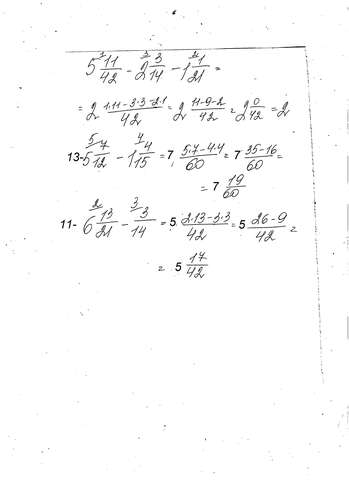 5 11/42 - 2 3/14 - 1 1/21 =
= 2 (1·11-3·3-2·1)/42 = 2 (11-9-2)/42 = 2 0/42 = 2
13-5 7/12 - 1 4/15 = 7, (5·7-4·4)/60 = 7 (35-16)/60 =
= 7 19/60
11- 6 13/21 - 3/14 = 5 (2·13-3·3)/42 = 5 (26-9)/42 =
= 5 17/42